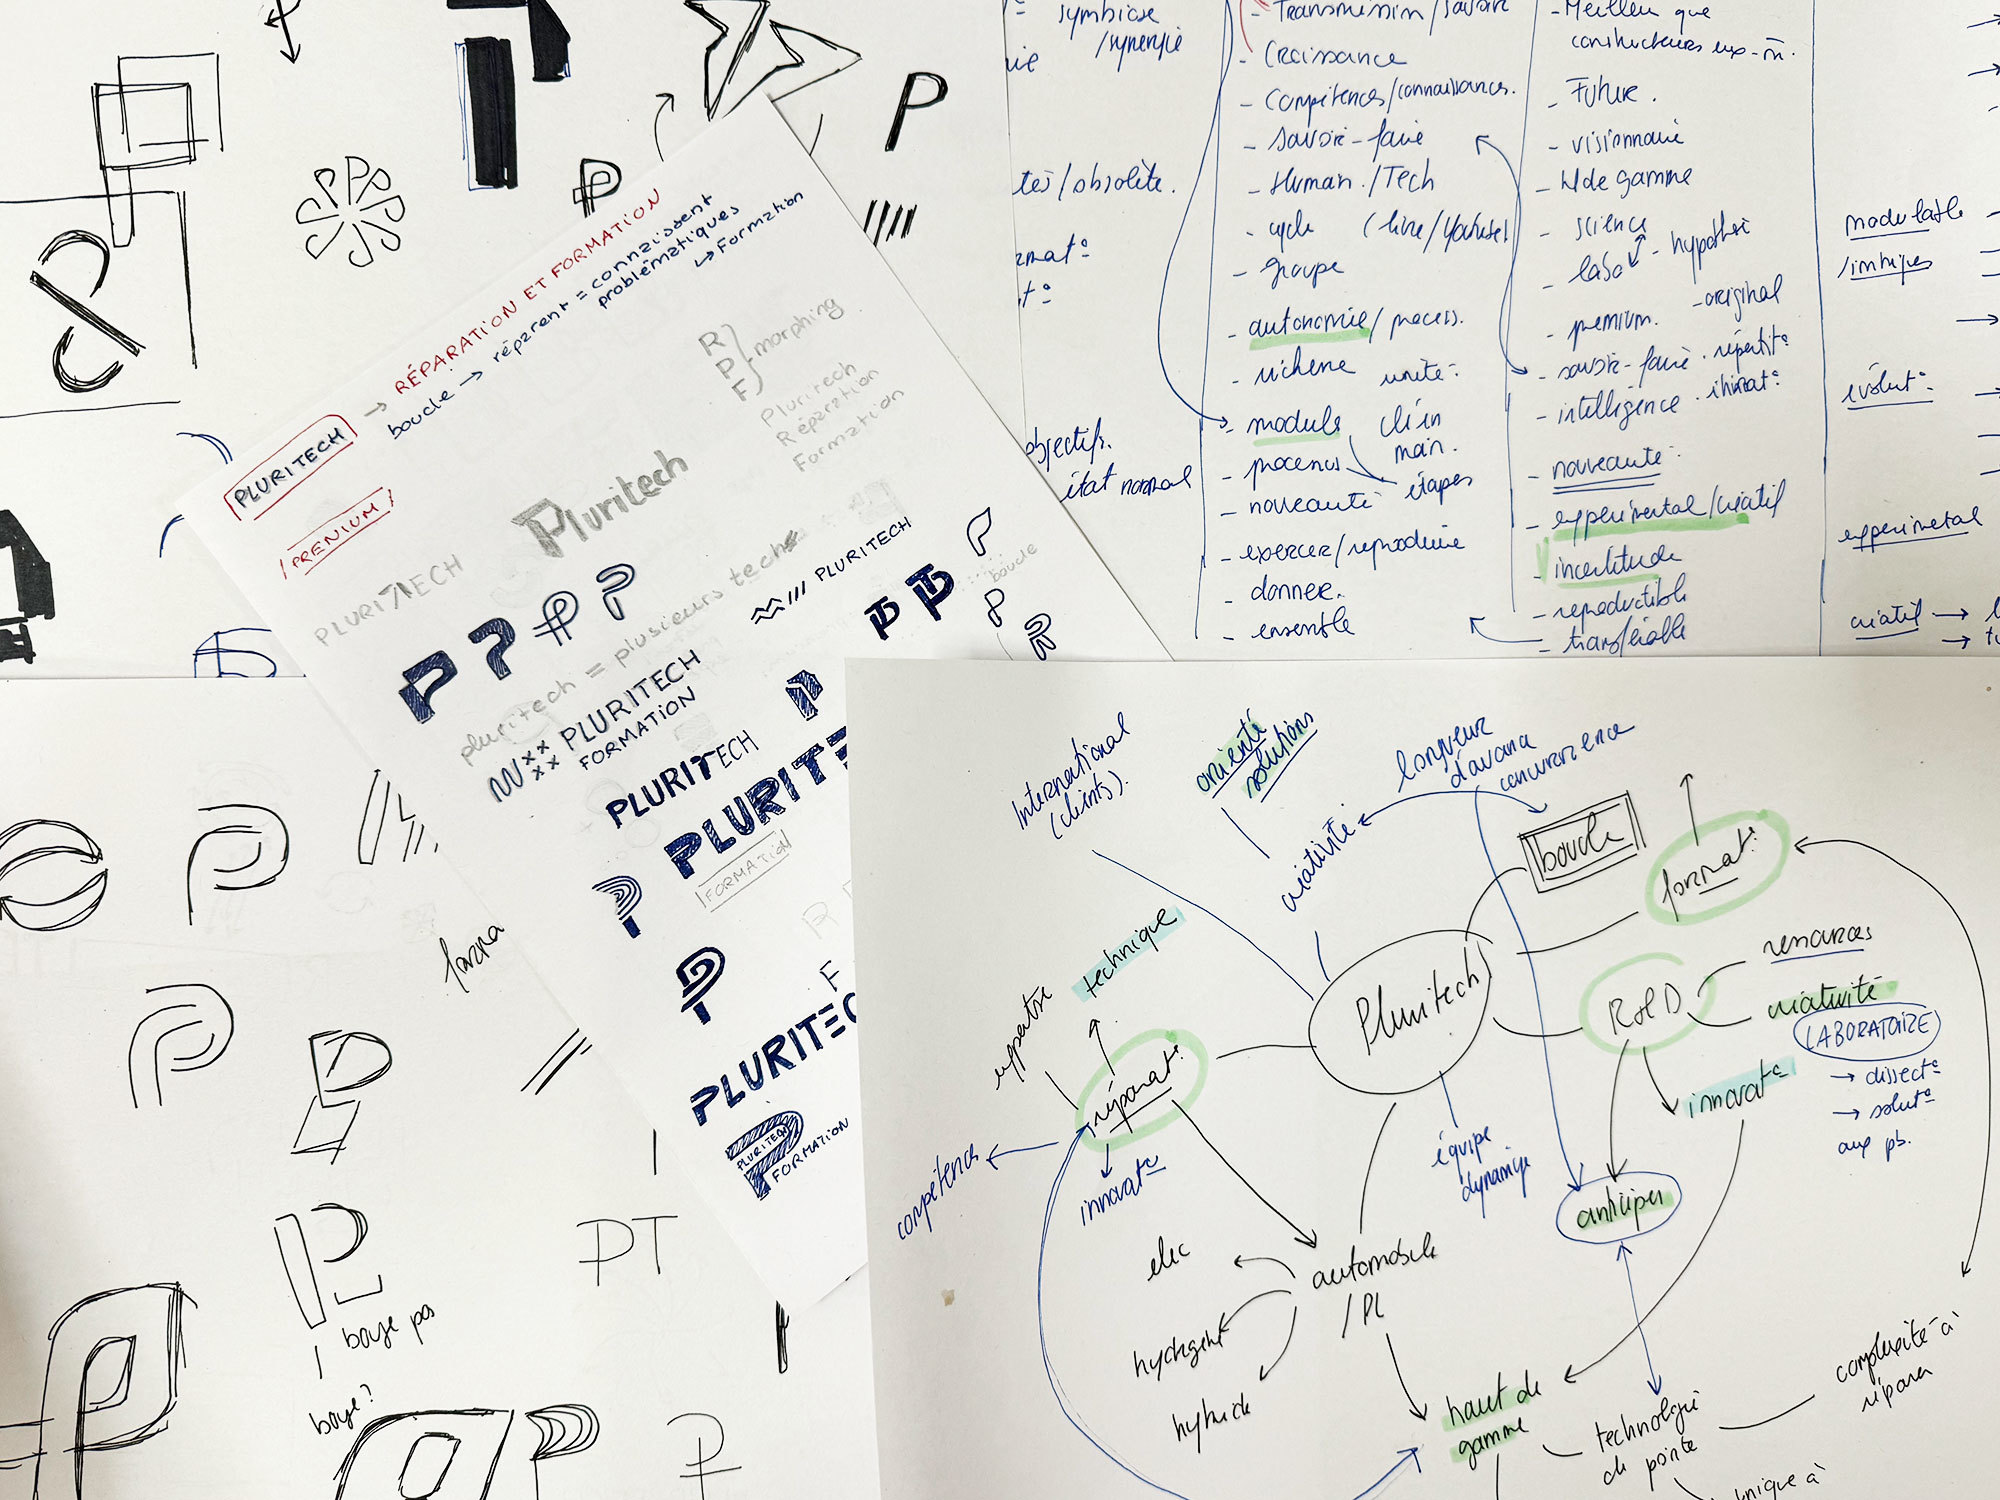 symbiose
/synergie
tes/obsolète.
objectifs.
état normal
- Transmission/savoir
- Croissance
- Compétences/connaissances.
- savoir-faire
- Human./Tech
- cycle (live/
- groupe
- autonomie/process.
- richesse
unité.
- module
clé en
main.
- processus
étapes
- nouveauté
- exercer/reproduire
- donner.
- ensemble
- Meilleur que
constructeurs eux-m.
- Future.
- visionnaire
- H de gamme
- science
- labo
- original
- premium.
- savoir-faire
- intelligence
- nouveauté
- experimental/créatif
- incertitude
- reproductible
- transférable
modulable
évolut°
experimetal
créatif
P
P
PLURITECH
→ RÉPARATION ET FORMATION
boucle → réparent = connaissent
problématiques
↳ Formation
/PREMIUM/
R
P
F
morphing
Pluritech
Réparation
Formation
Pluritech
PLURITECH
pluritech = plusieurs tech
PLURITECH
boucle
PLURITECH
FORMATION
PLURITECH
PLURITE
FORMATION
PLURITEC
PLURITECH
FORMATION
PT
bouge pas
bouge?
International
(clients).
orienté
solutions
longueur
d'avance
concurrence
créativité
boucle
format°
Pluritech
R&D
ressources
créativité
LABORATOIRE
→ dissect°
→ solut°
aux pb.
innovat°
technique
réparat°
innovat°
compétences
équipe
dynamique
anticiper
automobile
/PL
elec
hydrogent
hybride
haut de
gamme
technologie
de pointe
complexité à
réparer
unique à